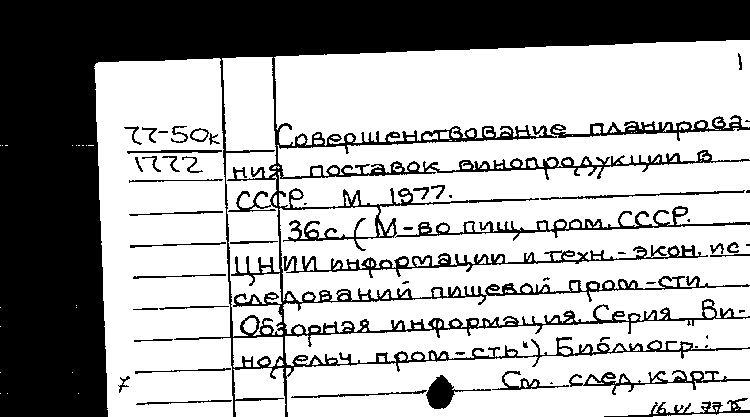 1
77-50к
1772
Совершенствование планирова-
ния поставок винопродукции в
СССР. М., 1977.
36с. (М-во пищ. пром. СССР.
ЦНИИ информации и техн.-экон. ис-
следований пищевой пром-сти.
Обзорная информация. Серия „Ви-
нодельч. пром-сть"). Библиогр.:
См. след. карт.
7
16.VI.77